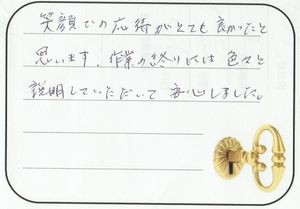 笑顔での応待がとても良かったと
思います。作業の終りには色々と
説明していただいて安心しました。